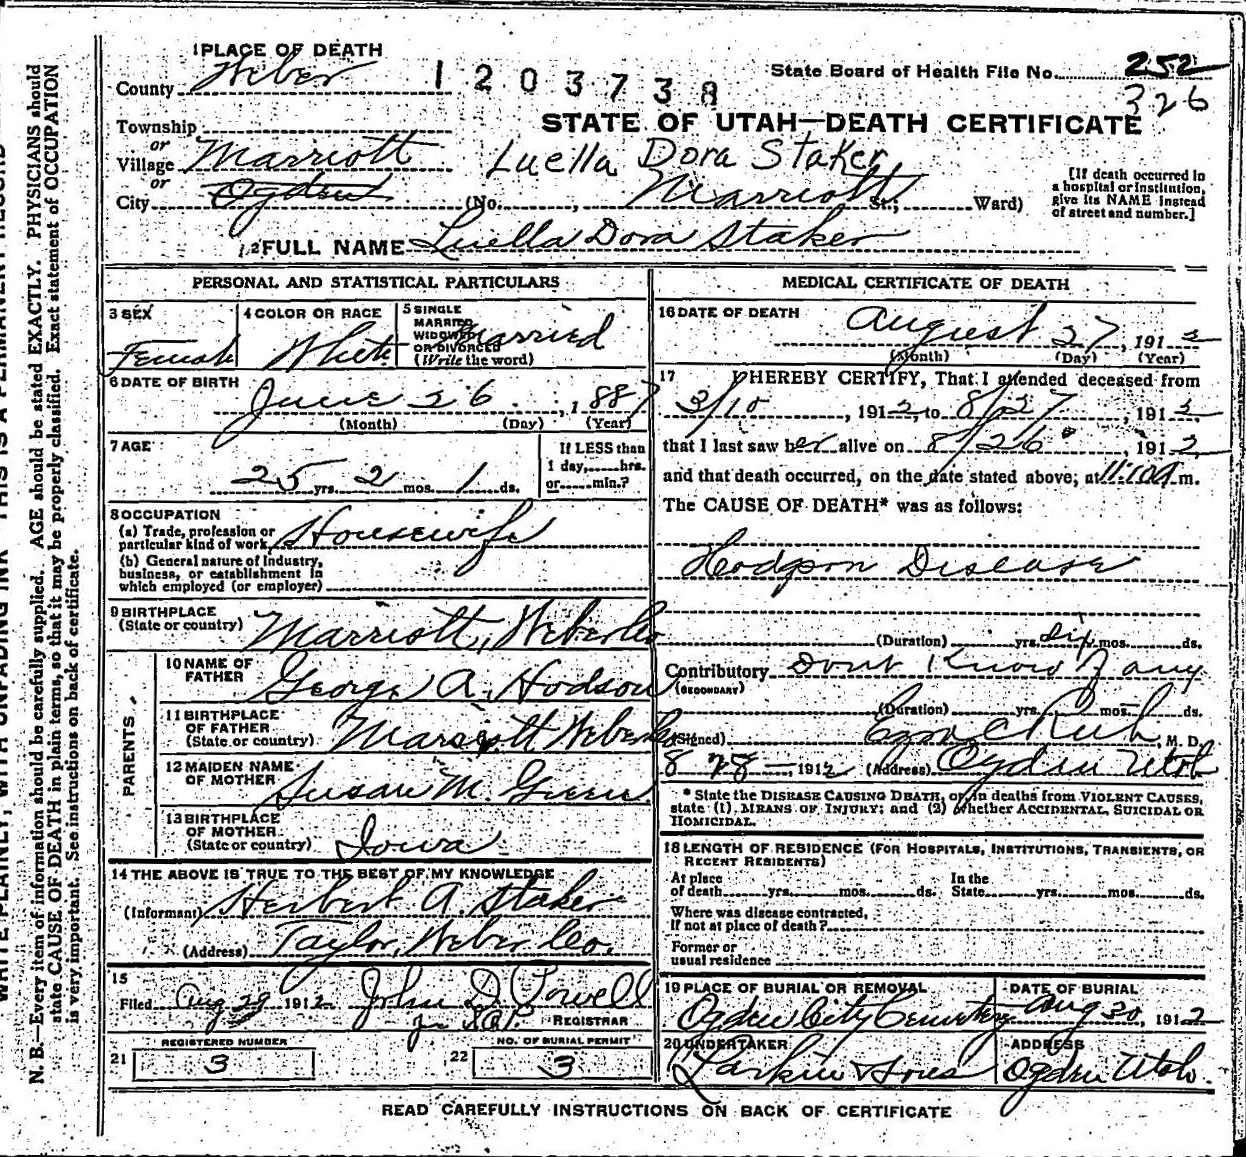 1 PLACE OF DEATH
County Weber
1203738
State Board of Health File No. 252
326
STATE OF UTAH—DEATH CERTIFICATE
Township
or
Village Marriott
Luella Dora Staker
or
City Ogden (No. , Marriott St.; Ward)
[If death occurred in
a hospital or institution,
give its NAME instead
of street and number.]
2 FULL NAME Luella Dora Staker
PERSONAL AND STATISTICAL PARTICULARS
3 SEX
Female
4 COLOR OR RACE
White
5 SINGLE
MARRIED
WIDOWED
OR DIVORCED
(Write the word)
Married
6 DATE OF BIRTH
June 26, 1887
(Month) (Day) (Year)
7 AGE
25 yrs. 2 mos. 1 ds.
If LESS than
1 day, hrs.
or min.?
8 OCCUPATION
(a) Trade, profession or
particular kind of work Housewife
(b) General nature of Industry,
business, or establishment in
which employed (or employer)
9 BIRTHPLACE
(State or country) Marriott, Weber Co
PARENTS
10 NAME OF
FATHER George A. Hodson
11 BIRTHPLACE
OF FATHER
(State or country) Marriott Weber Co
12 MAIDEN NAME
OF MOTHER Susan M. Green
13 BIRTHPLACE
OF MOTHER
(State or country) Iowa
14 THE ABOVE IS TRUE TO THE BEST OF MY KNOWLEDGE
(Informant) Herbert A. Staker
(Address) Taylor, Weber Co.
15
Filed Aug 29 1912 John D Powell
REGISTRAR
REGISTERED NUMBER
21 3
NO. OF BURIAL PERMIT
22 3
MEDICAL CERTIFICATE OF DEATH
16 DATE OF DEATH
August 27, 1912
(Month) (Day) (Year)
17 I HEREBY CERTIFY, That I attended deceased from
3/10, 1912, to 8/27, 1912
that I last saw her alive on 8/26, 1912
and that death occurred, on the date stated above, at 11:10 a. m.
The CAUSE OF DEATH* was as follows:
Hodgson Disease
(Duration) yrs. six mos. ds.
Contributory Dont Know if any
(SECONDARY)
(Duration) yrs. mos. ds.
(Signed) , M. D.
8 28 — , 1912 (Address) Ogden Utah
* State the DISEASE CAUSING DEATH, or, in deaths from VIOLENT CAUSES,
state (1) MEANS OF INJURY; and (2) whether ACCIDENTAL, SUICIDAL OR
HOMICIDAL.
18 LENGTH OF RESIDENCE (FOR HOSPITALS, INSTITUTIONS, TRANSIENTS, OR
RECENT RESIDENTS)
At place
of death yrs. mos. ds.
In the
State yrs. mos. ds.
Where was disease contracted,
If not at place of death?
Former or
usual residence
19 PLACE OF BURIAL OR REMOVAL
Ogden City Cemetery
DATE OF BURIAL
Aug 30, 1912
20 UNDERTAKER
Larkin & Sons
ADDRESS
Ogden Utah.
READ CAREFULLY INSTRUCTIONS ON BACK OF CERTIFICATE
WRITE PLAINLY, WITH UNFADING INK THIS IS A PERMANENT RECORD
N. B.—Every item of information should be carefully supplied. AGE should be stated EXACTLY. PHYSICIANS should
state CAUSE OF DEATH in plain terms, so that it may be properly classified. Exact statement of OCCUPATION
is very important. See instructions on back of certificate.